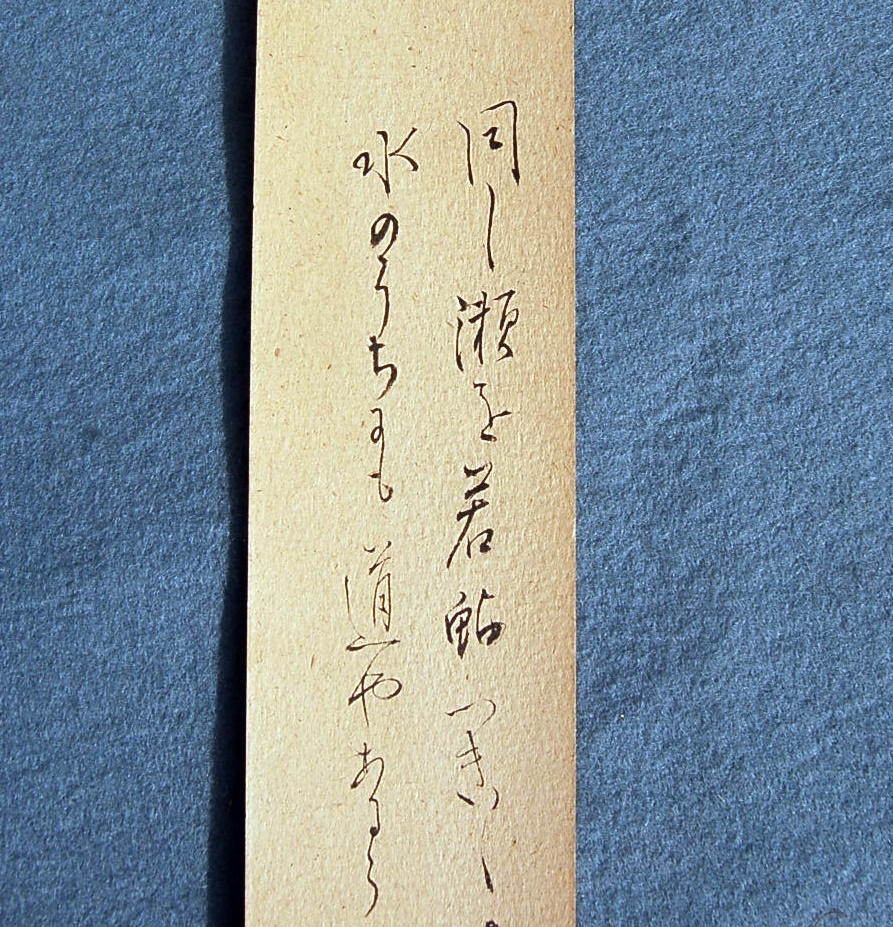 同し瀬を若鮎つきし
水のうちにも道やあるら